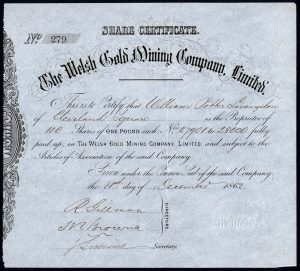 SHARE CERTIFICATE.
No 279
The Welsh Gold Mining Company, Limited.
This is to Certify that William Potts Livingston
of Cleveland Square is the Proprietor
of 100 Shares of ONE POUND each No 27901 to 28000 fully
paid up, in THE WELSH GOLD MINING COMPANY, LIMITED, and subject to the
Articles of Association of the said Company.
Given under the Common Seal of the said Company,
the 31st day of December 1862.
DIRECTORS
Secretary.